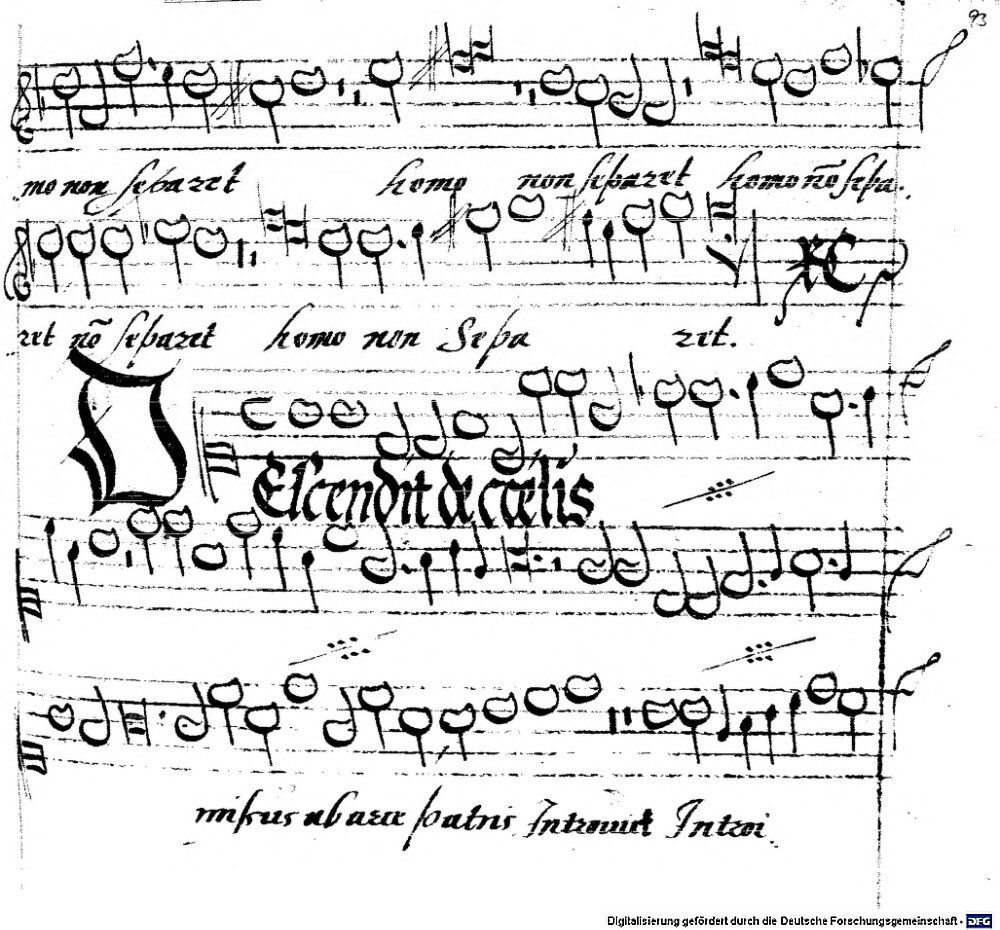 93
mo non separet homo non separet homo nō sepa.
ret nō separet homo non Sepa ret.
DEscendit de celis
missus ab arce patris Introuit Introi
Digitalisierung gefördert durch die Deutsche Forschungsgemeinschaft - DFG